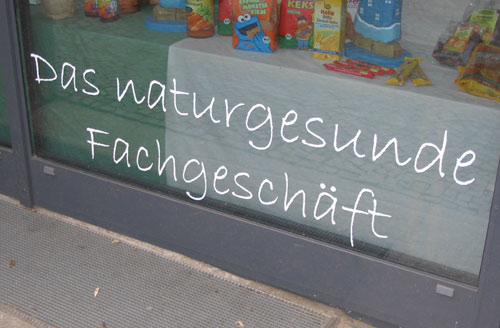 KEKS
Das naturgesunde
Fachgeschäft